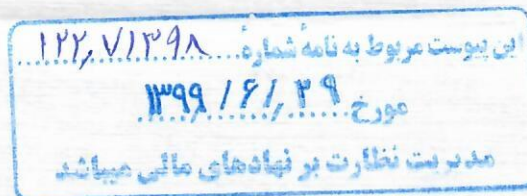 این پیوست مربوط به نامهٔ شمارهٔ ۱۲۲/۷۱۳۹۸
مورخ ۱۳۹۹/۶/۲۹
مدیریت نظارت بر نهادهای مالی میباشد